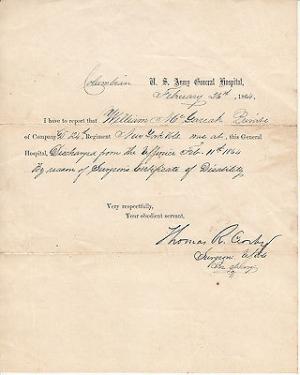 Columbian U. S. Army General Hospital,
February 26th, 1864.
I have to report that William McGeouch Private
of Company 24th Regiment New York was at, this General
Hospital, Discharged from the Service Feb. 11th 1864
By reason of Surgeons Certificate of Disability
Very respectfully,
Your obedient servant,
Thomas R. Crosby
Surgeon
In charge